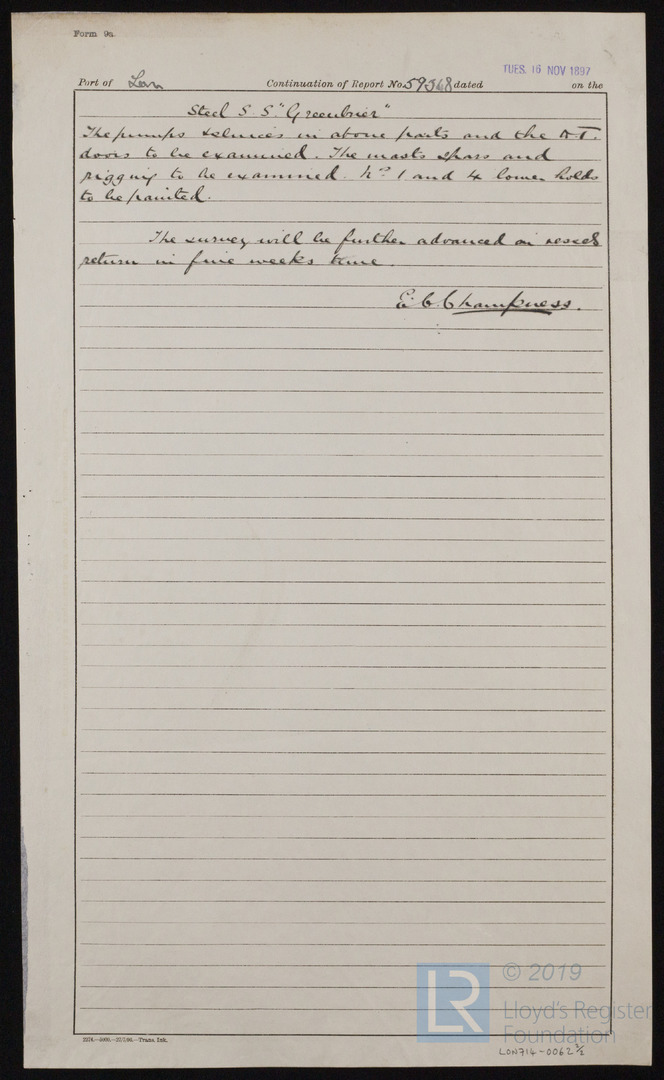 Form 9a.
TUES. 16 NOV 1897
Port of Lon Continuation of Report No. 59368 dated on the
Steel S.S. "Greenbrier"
The pumps sluices in above parts and the W.T.
doors to be examined. The masts spars and
rigging to be examined. No. 1 and 4 lower holds
to be painted.
The survey will be further advanced on vessels
return in five weeks time.
E. C. Champness.
© 2019
LR
Lloyd's Register
Foundation
LON714-0062 2/2